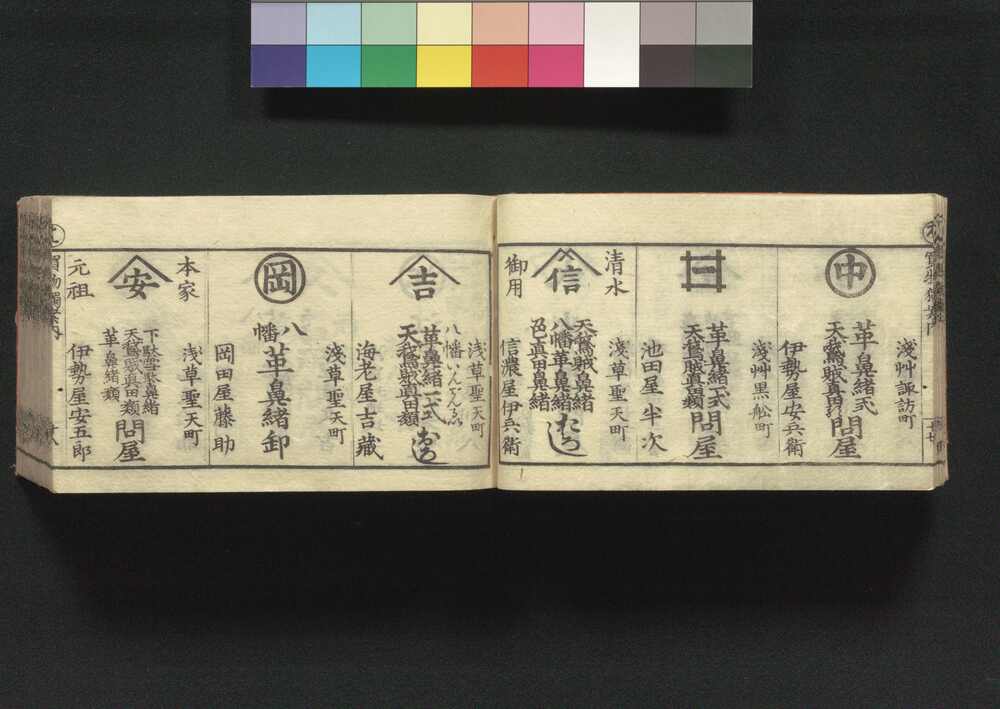 淺艸諏訪町
中
革鼻緒一式
天鵞䘥真田
問屋
伊勢屋安兵衛
淺艸黒舩町
革鼻緒一式
天鵞䘥真田類
問屋
池田屋半次
淺草聖天町
清水
信
御用
天鵞䘥鼻緒
八幡革鼻緒
色真田鼻緒
おろし
信濃屋伊兵衛
淺草聖天町
吉
八幡いんでんるい
革鼻緒一式
天鵞䘥真田類
おろし
海老屋吉藏
淺草聖天町
岡
八幡
革鼻緒卸
岡田屋藤助
淺草聖天町
本家
安
元祖
天鵞䘥真田類
革鼻緒類
問屋
伊勢屋安五郎